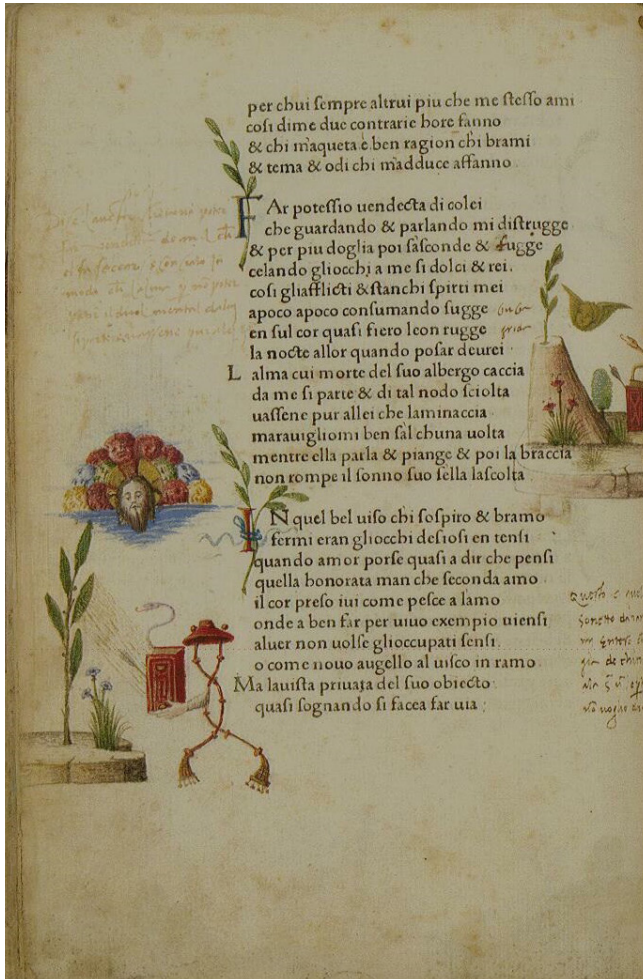 per chui ſempre altrui piu che me ſteſſo ami
coſi dime due contrarie hore fanno
& chi m'aqueta è ben ragion chi brami
& tema & odi chi m'adduce affanno
FAr poteſſio uendecta di colei
che guardando & parlando mi diſtrugge
& per piu doglia poi ſaſconde & fugge
celando gliocchi a me ſi dolci & rei.
coſi gliafflicti & ſtanchi ſpirti mei
apoco apoco conſumando ſugge
en ſul cor quaſi fiero leon rugge
la nocte allor quando poſar deurei
L alma cui morte del ſuo albergo caccia
da me ſi parte & di tal nodo ſciolta
uaſſene pur allei che laminaccia
marauigliomi ben ſal chuna uolta
mentre ella parla & piange & poi la braccia
non rompe il ſonno ſuo ſella laſcolta
IN quel bel uiſo chi ſoſpiro & bramo
fermi eran gliocchi deſioſi en tenſi
quando amor porſe quaſi a dir che penſi
quella honorata man che ſeconda amo
il cor preſo iui come peſce a lamo
onde a ben far per uiuo exempio uienſi
aluer non uolſe glioccupati ſenſi
o come nouo augello al uiſco in ramo
Ma lauiſta priuata del ſuo obiecto
quaſi ſognando ſi facea far uia